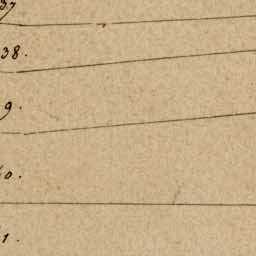 37
38.
9.
0.
1.